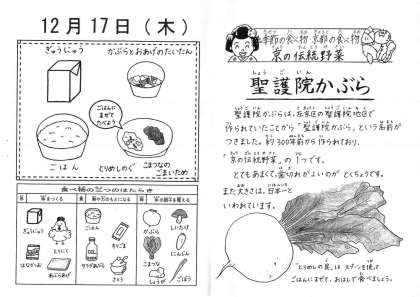 12月17日(木)
ぎゅうにゅう
かぶらとおあげのたいたん
ごはんに
まぜて
たべよう!
ごはん
とりめしのぐ
こまつなの
ごまいため
食べ物の三つのはたらき
ぎゅうにゅう
ごはん
さとう
かぶら
しいたけ
にんじん
こまつな
ごぼう
とりにく
あぶらあげ
季節の食べ物 京都の食べ物
京の伝統野菜
しょうごいん
聖護院かぶら
聖護院かぶらは、左京区の聖護院地区で
作られていたことから「聖護院かぶら」という名前が
つきました。約300年前から作られており、
「京の伝統野菜」の1つです。
とてもあまくて、歯切れがよいのが とくちょうです。
また 大きさは、日本一と
いわれています。
「とりめしの具」は スプーンを使って
ごはんにまぜて、おはしで食べましょう。